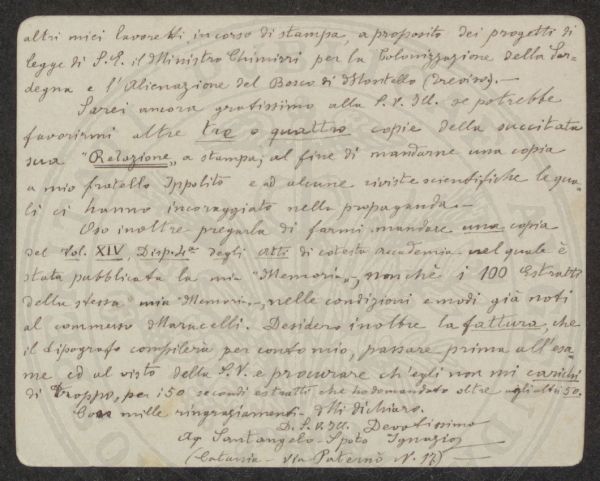 altri miei lavoretti in corso di stampa, a proposito dei progetti di
legge di S. E. il Ministro Chimirri per la Colonizzazione della Sar-
degna e l'Alienazione del Bosco di Montello (Treviso). —
Sarei ancora gratissimo alla S. V. Ill. se potrebbe
favorirmi altre tre o quattro copie della succitata
sua "Relazione" a stampa; al fine di mandarne una copia
a mio fratello Ippolito e ad alcune riviste scientifiche le qua-
li ci hanno incoraggiato nella propaganda. —
Oso inoltre pregarla di farmi mandare una copia
del Vol. XIV, Disp. 4ª degli Atti di cotesta Accademia nel quale è
stata pubblicata la mia "Memoria", nonchè i 100 Estratti
della stessa mia "Memoria", nelle condizioni e modi già noti
al commesso Maracelli. Desidero inoltre la fattura, che
il tipografo compilerà per conto mio, passare prima all'esa-
me ed al visto della S. V. e procurare ch'egli non mi carichi
di troppo, per i 50 secondi estratti che ho domandato oltre agli altri 50.
Con mille ringraziamenti mi dichiaro.
D. S. V. Ill. Devotissimo
Ag. Santangelo-Spoto Ignazio
(Catania - Via Paternò N. 17) —